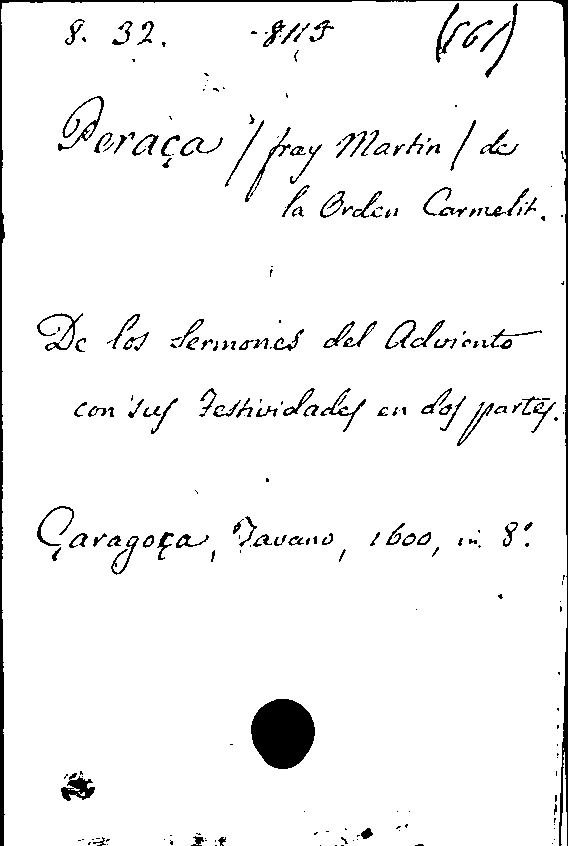 8. 32. -8113 (561)
Peraça / fray Martin / de
la Orden Carmelit.
De los Sermones del Adviento
con sus Festividades en dos partes.
Çaragoça, Tavano, 1600, in 8º.